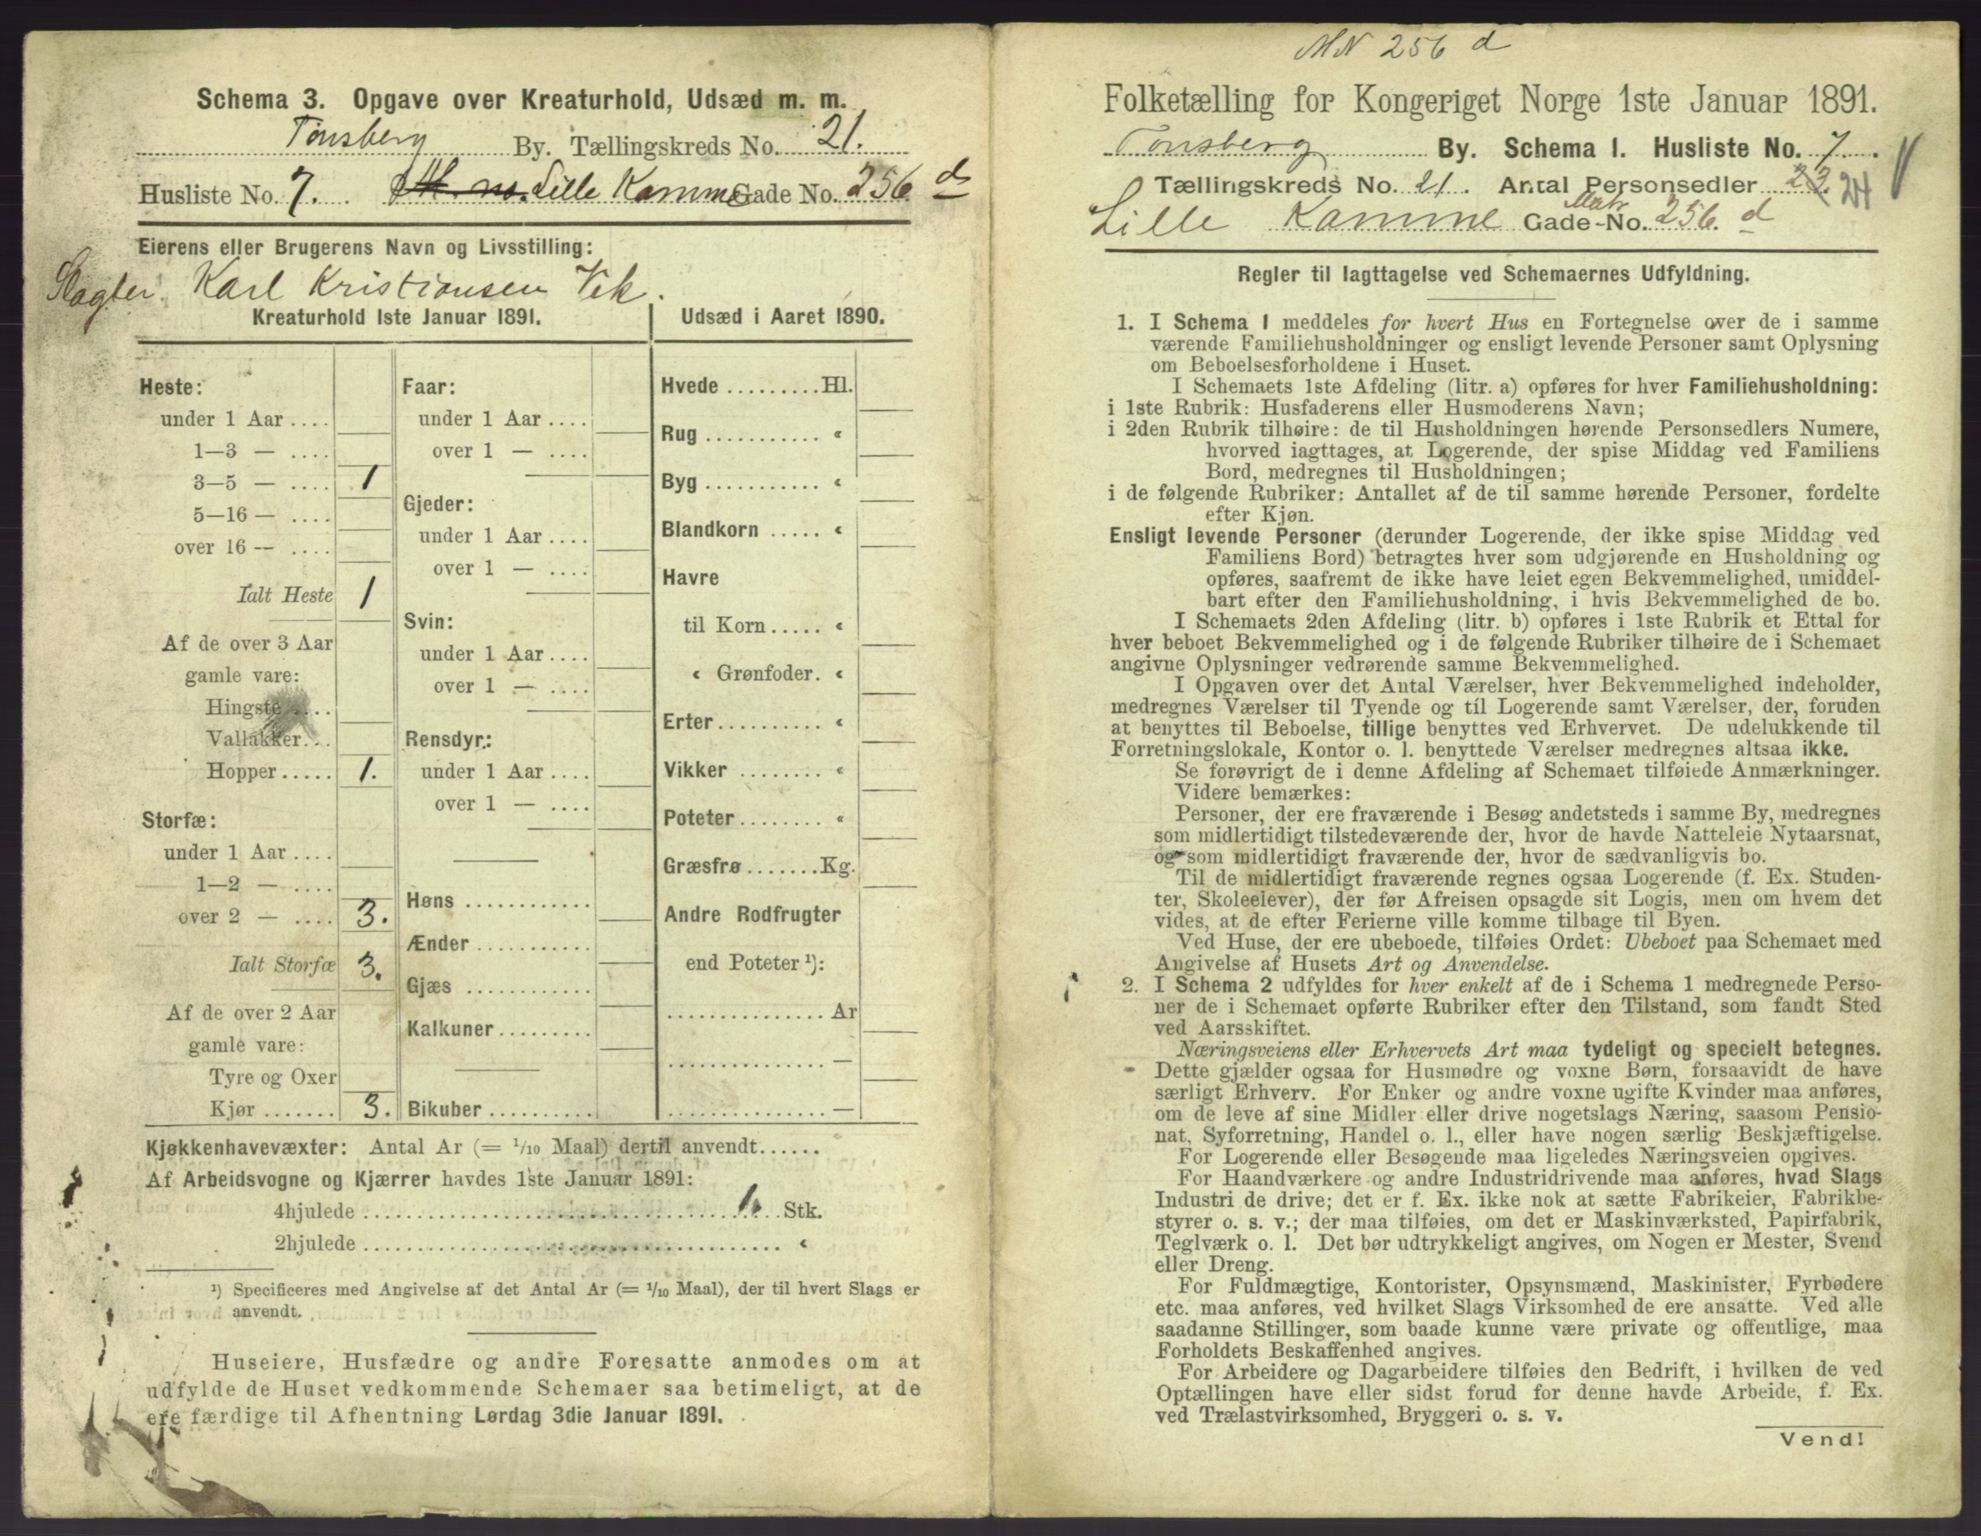 Schema 3. Opgave over Kreaturhold, Udsæd m. m.
Tønsberg By. Tællingskreds No. 21.
Husliste No. 7. Lille Kamme Gade No. 256 d
Eierens eller Brugerens Navn og Livsstilling:
Slagter Karl Kristiansen Vik.
Kreaturhold 1ste Januar 1891.
Heste:
under 1 Aar ....
1—3 — ....
3—5 — .... 1
5—16 — ....
over 16 — ....
Ialt Heste 1
Af de over 3 Aar
gamle vare:
Hingste ....
Vallakker...
Hopper..... 1.
Storfæ:
under 1 Aar ....
1—2 — ....
over 2 — .... 3.
Ialt Storfæ 3.
Af de over 2 Aar
gamle vare:
Tyre og Oxer
Kjør ....... 3.
Faar:
under 1 Aar ....
over 1 — ....
Gjeder:
under 1 Aar ....
over 1 — ....
Svin:
under 1 Aar ....
over 1 — ....
Rensdyr:
under 1 Aar ....
over 1 — ....
Høns ............
Ænder ...........
Gjæs ............
Kalkuner.........
Bikuber ..........
Udsæd i Aaret 1890.
Hvede .........Hl.
Rug ........... «
Byg ........... «
Blandkorn ..... «
Havre
til Korn..... «
« Grønfoder. «
Erter.......... «
Vikker ........ «
Poteter........ «
Græsfrø.......Kg.
Andre Rodfrugter
end Poteter ¹):
............... Ar
............... —
............... —
Kjøkkenhavevæxter: Antal Ar (= 1/10 Maal) dertil anvendt......
Af Arbeidsvogne og Kjærrer havdes 1ste Januar 1891:
4hjulede .......... 1. Stk.
2hjulede .......... «
¹) Specificeres med Angivelse af det Antal Ar (= 1/10 Maal), der til hvert Slags er
anvendt.
Huseiere, Husfædre og andre Foresatte anmodes om at
udfylde de Huset vedkommende Schemaer saa betimeligt, at de
ere færdige til Afhentning Lørdag 3die Januar 1891.
MN 256 d
Folketælling for Kongeriget Norge 1ste Januar 1891.
Tønsberg By. Schema I. Husliste No. 7.
Tællingskreds No. 21. Antal Personsedler 23. 24
Matr
Lille Kamme Gade-No. 256. d
Regler til Iagttagelse ved Schemaernes Udfyldning.
1. I Schema I meddeles for hvert Hus en Fortegnelse over de i samme
værende Familiehusholdninger og ensligt levende Personer samt Oplysning
om Beboelsesforholdene i Huset.
I Schemaets 1ste Afdeling (litr. a) opføres for hver Familiehusholdning:
i 1ste Rubrik: Husfaderens eller Husmoderens Navn;
i 2den Rubrik tilhøire: de til Husholdningen hørende Personsedlers Numere,
hvorved iagttages, at Logerende, der spise Middag ved Familiens
Bord, medregnes til Husholdningen;
i de følgende Rubriker: Antallet af de til samme hørende Personer, fordelte
efter Kjøn.
Ensligt levende Personer (derunder Logerende, der ikke spise Middag ved
Familiens Bord) betragtes hver som udgjørende en Husholdning og
opføres, saafremt de ikke have leiet egen Bekvemmelighed, umiddel-
bart efter den Familiehusholdning, i hvis Bekvemmelighed de bo.
I Schemaets 2den Afdeling (litr. b) opføres i 1ste Rubrik et Ettal for
hver beboet Bekvemmelighed og i de følgende Rubriker tilhøire de i Schemaet
angivne Oplysninger vedrørende samme Bekvemmelighed.
I Opgaven over det Antal Værelser, hver Bekvemmelighed indeholder,
medregnes Værelser til Tyende og til Logerende samt Værelser, der, foruden
at benyttes til Beboelse, tillige benyttes ved Erhvervet. De udelukkende til
Forretningslokale, Kontor o. l. benyttede Værelser medregnes altsaa ikke.
Se forøvrigt de i denne Afdeling af Schemaet tilføiede Anmærkninger.
Videre bemærkes:
Personer, der ere fraværende i Besøg andetsteds i samme By, medregnes
som midlertidigt tilstedeværende der, hvor de havde Natteleie Nytaarsnat,
og som midlertidigt fraværende der, hvor de sædvanligvis bo.
Til de midlertidigt fraværende regnes ogsaa Logerende (f. Ex. Studen-
ter, Skoleelever), der før Afreisen opsagde sit Logis, men om hvem det
vides, at de efter Ferierne ville komme tilbage til Byen.
Ved Huse, der ere ubeboede, tilføies Ordet: Ubeboet paa Schemaet med
Angivelse af Husets Art og Anvendelse.
2. I Schema 2 udfyldes for hver enkelt af de i Schema 1 medregnede Perso-
ner de i Schemaet opførte Rubriker efter den Tilstand, som fandt Sted
ved Aarsskiftet.
Næringsveiens eller Erhvervets Art maa tydeligt og specielt betegnes.
Dette gjælder ogsaa for Husmødre og voxne Børn, forsaavidt de have
særligt Erhverv. For Enker og andre voxne ugifte Kvinder maa anføres,
om de leve af sine Midler eller drive nogetslags Næring, saasom Pensio-
nat, Syforretning, Handel o. l., eller have nogen særlig Beskjæftigelse.
For Logerende eller Besøgende maa ligeledes Næringsveien opgives.
For Haandværkere og andre Industridrivende maa anføres, hvad Slags
Industri de drive; det er f. Ex. ikke nok at sætte Fabrikeier, Fabrikbe-
styrer o. s. v.; der maa tilføies, om det er Maskinværksted, Papirfabrik,
Teglværk o. l. Det bør udtrykkeligt angives, om Nogen er Mester, Svend
eller Dreng.
For Fuldmægtige, Kontorister, Opsynsmænd, Maskinister, Fyrbødere
etc. maa anføres, ved hvilket Slags Virksomhed de ere ansatte. Ved alle
saadanne Stillinger, som baade kunne være private og offentlige, maa
Forholdets Beskaffenhed angives.
For Arbeidere og Dagarbeidere tilføies den Bedrift, i hvilken de ved
Optællingen have eller sidst forud for denne havde Arbeide, f. Ex.
ved Trælastvirksomhed, Bryggeri o. s. v.
Vend!